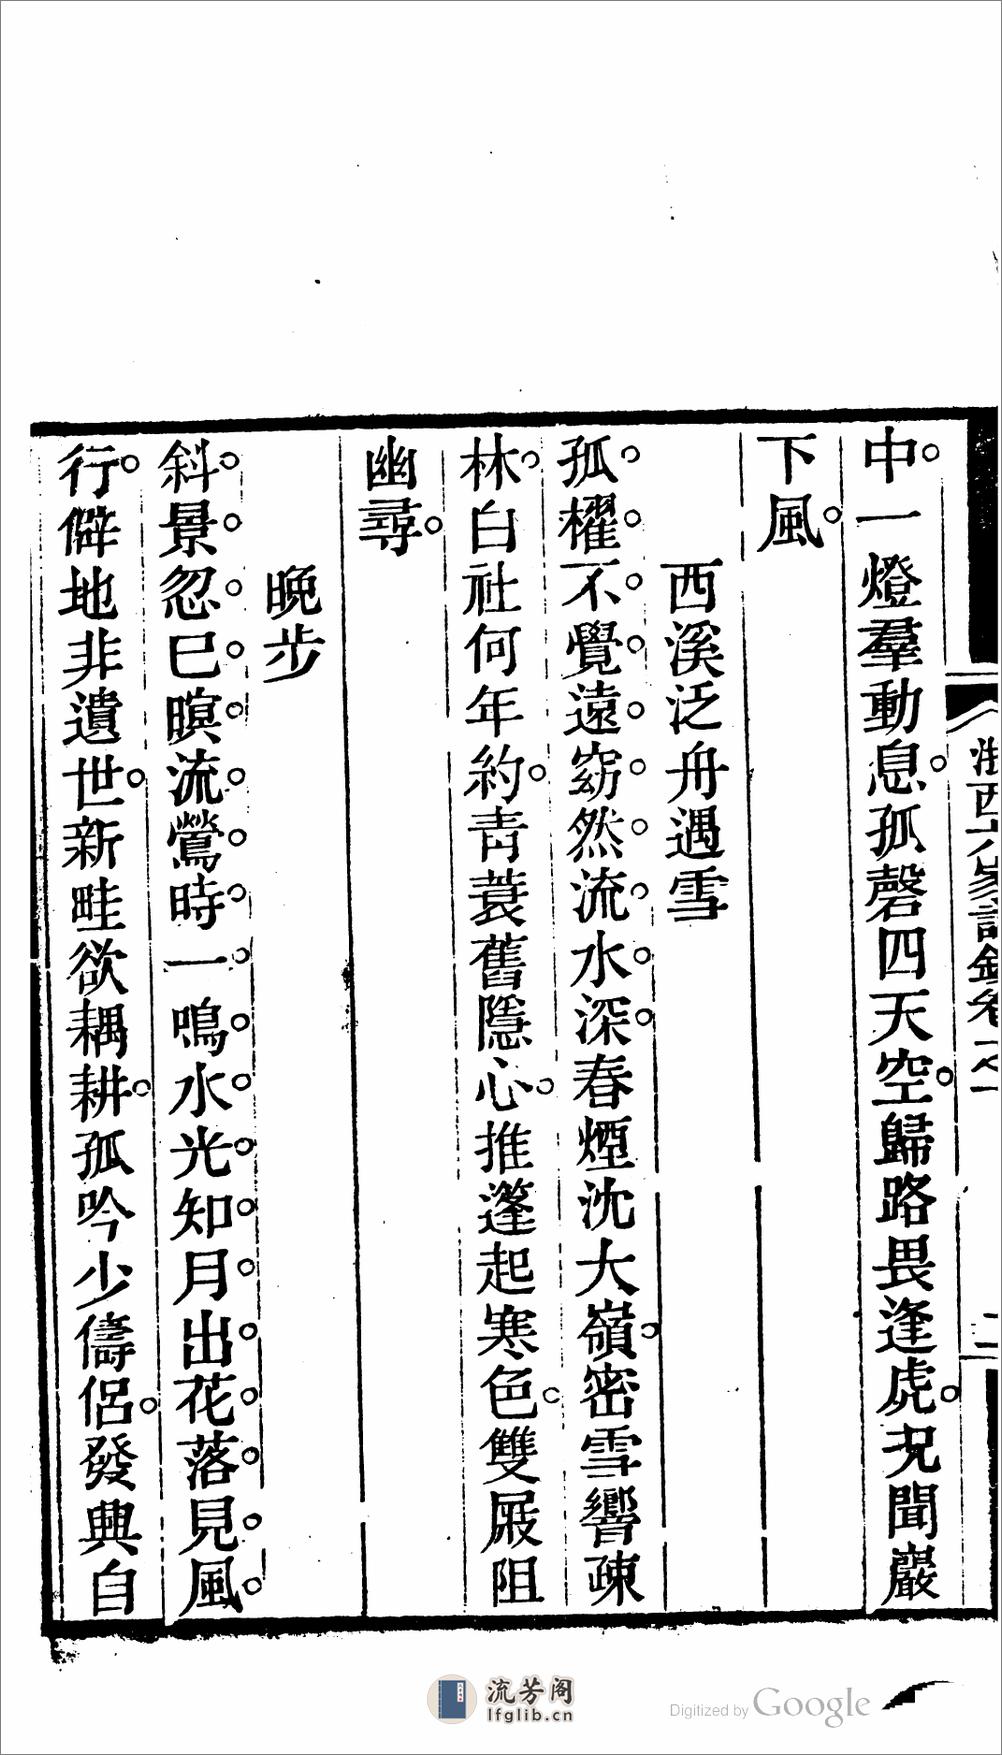 浙西六家詩鈔卷之一
二
中一燈羣動息孤磬四天空歸路畏逢虎況聞巖
下風
西溪泛舟遇雪
孤櫂不覺遠窈然流水深春煙沈大嶺密雪響疎
林白社何年約青蓑舊隱心推篷起寒色雙屐阻
幽尋
晚步
斜景忽已暝流鶯時一鳴水光知月出花落見風
行僻地非遺世新畦欲耦耕孤吟少儔侶發興自
流芳阁
lfglib.cn
Digitized by Google